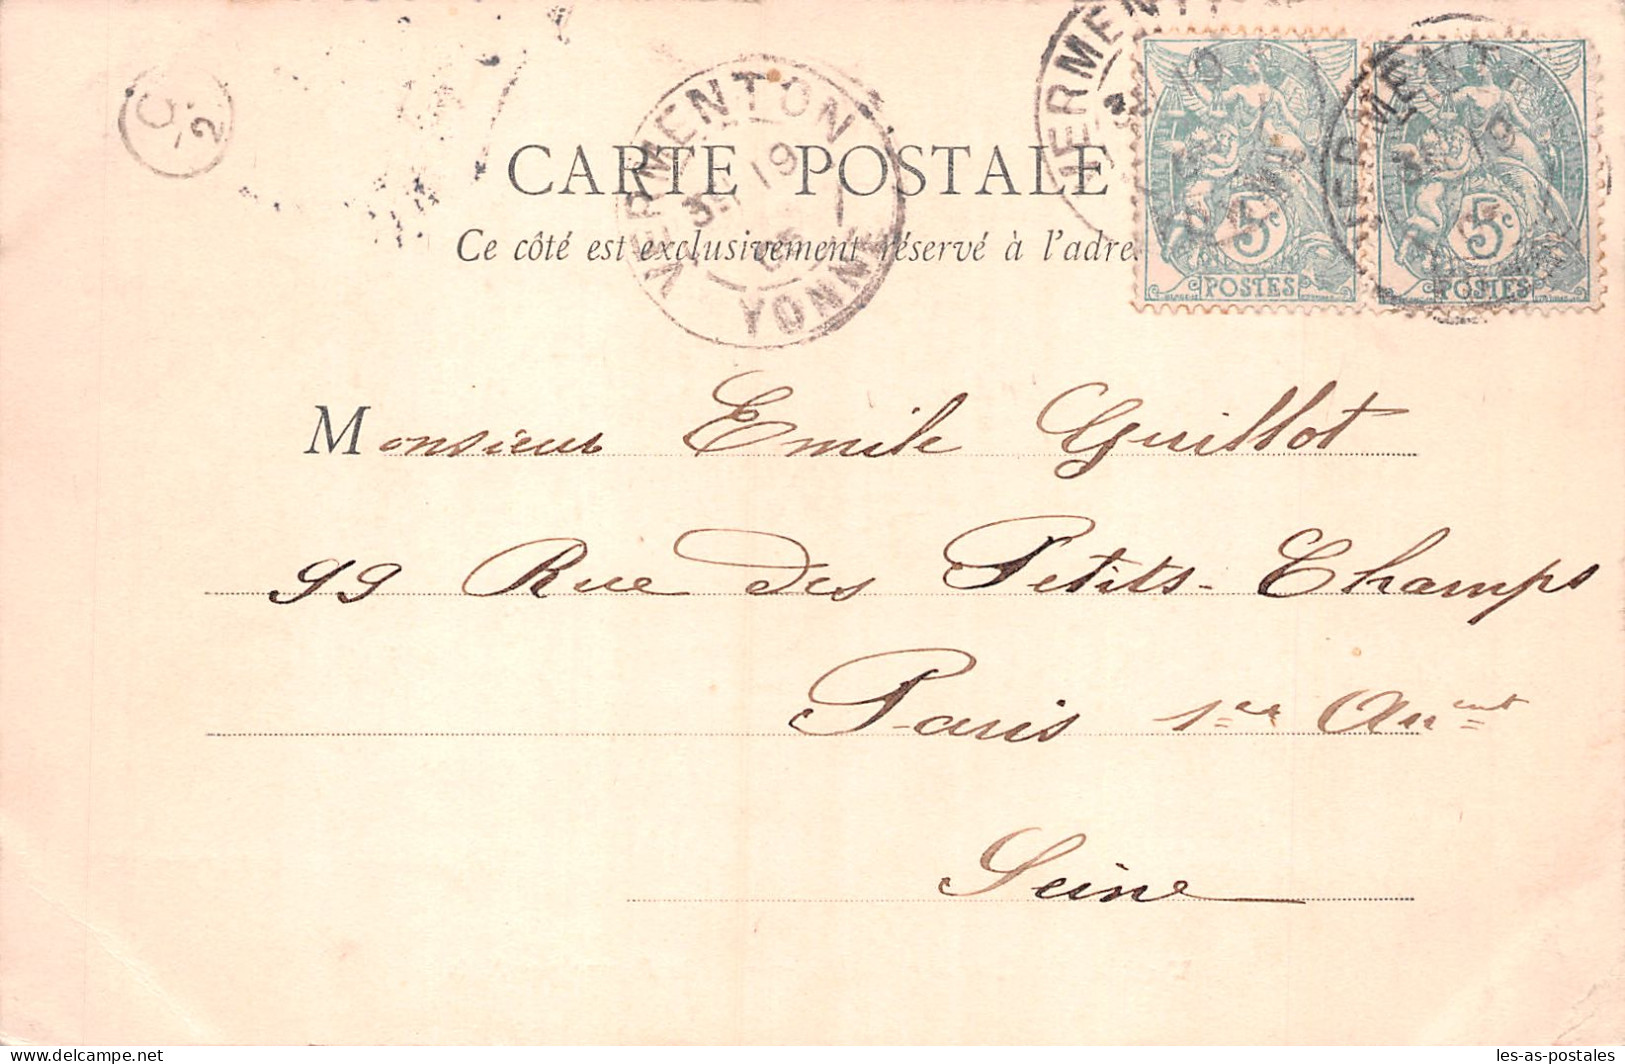 VERMENTON
19
YONNE
C
2
CARTE POSTALE
Ce côté est exclusivement réservé à l'adre
5c
POSTES
5c
POSTES
Monsieur Emile Guillot
99 Rue des Petits-Champs
Paris 1er Arr
Seine
delcampe.net
les-as-postales